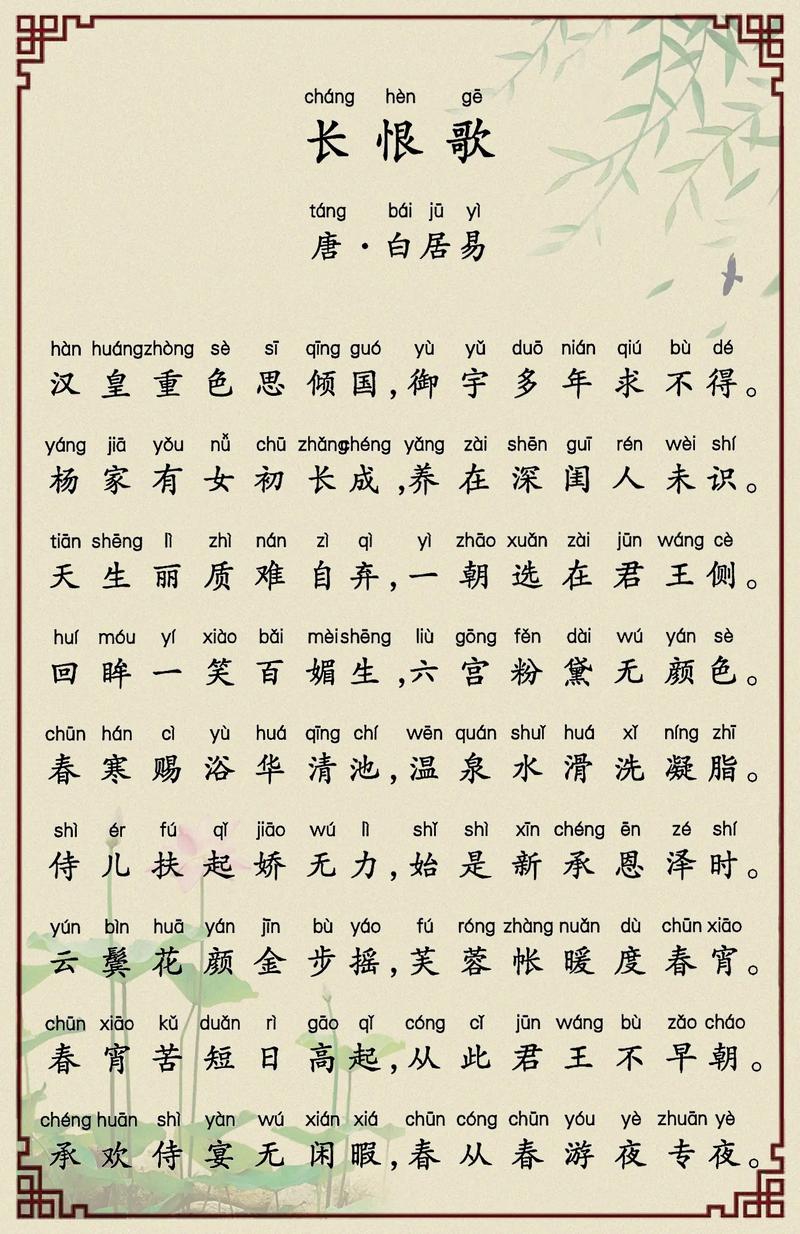 cháng hèn gē
长恨歌
táng bái jū yì
唐·白居易
hàn huáng zhòng sè sī qīng guó yù yǔ duō nián qiú bù dé
汉皇重色思倾国,御宇多年求不得。
yáng jiā yǒu nǚ chū zhǎng chéng yǎng zài shēn guī rén wèi shí
杨家有女初长成,养在深闺人未识。
tiān shēng lì zhì nán zì qì yì zhāo xuǎn zài jūn wáng cè
天生丽质难自弃,一朝选在君王侧。
huí móu yí xiào bǎi mèi shēng liù gōng fěn dài wú yán sè
回眸一笑百媚生,六宫粉黛无颜色。
chūn hán cì yù huá qīng chí wēn quán shuǐ huá xǐ níng zhī
春寒赐浴华清池,温泉水滑洗凝脂。
shì ér fú qǐ jiāo wú lì shǐ shì xīn chéng ēn zé shí
侍儿扶起娇无力,始是新承恩泽时。
yún bìn huā yán jīn bù yáo fú róng zhàng nuǎn dù chūn xiāo
云鬓花颜金步摇,芙蓉帐暖度春宵。
chūn xiāo kǔ duǎn rì gāo qǐ cóng cǐ jūn wáng bù zǎo cháo
春宵苦短日高起,从此君王不早朝。
chéng huān shì yàn wú xián xiá chūn cóng chūn yóu yè zhuān yè
承欢侍宴无闲暇,春从春游夜专夜。